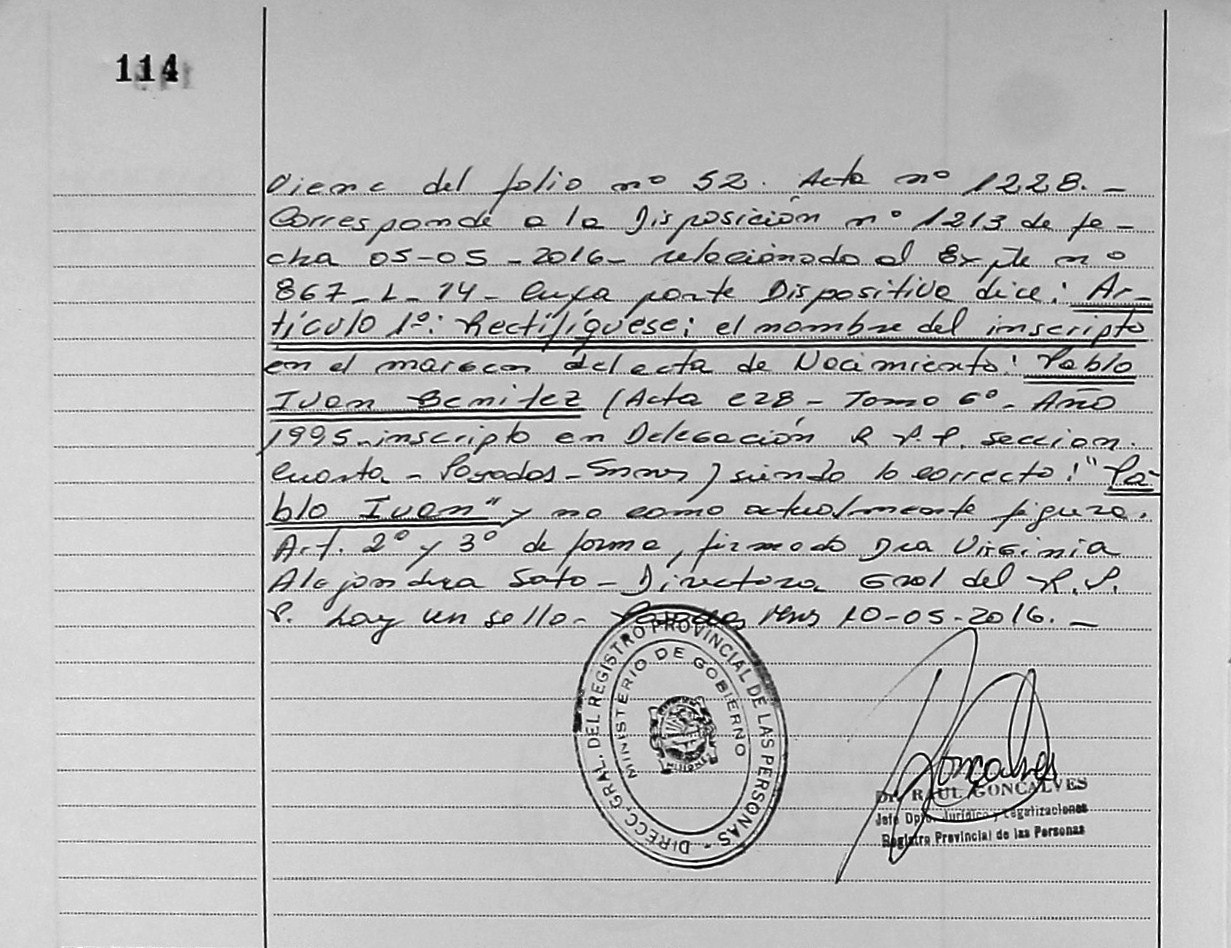 114
Viene del folio nº 52. Acta nº 1228.-
Corresponde a la Disposición nº 1213 de fe-
cha 05-05-2016- relacionado al Expte nº
867-L-14- Cuya parte Dispositiva dice: Ar-
tículo 1º: Rectifíquese; el nombre del inscripto
en el del acta de Nacimiento: Pablo
Ivan Benitez (Acta - Tomo 6º - Año
1995-inscripto en Delegación R.P.P. seccion
Cuarta - Posadas - ) siendo lo correcto: "Pa-
blo Ivan" y no como actualmente figura.
Art. 2º y 3º de forma, firmado Dra Virginia
Alejandra Sato - Directora Gral del R.P.
P. hay un sello- 10-05-2016.-
DIRECC. GRAL. DEL REGISTRO PROVINCIAL DE LAS PERSONAS -
MINISTERIO DE GOBIERNO
MISIONES
Goncalves
Dr. RAUL GONCALVES
Jefe Dpto. Jurídico y Legalizaciones
Registro Provincial de las Personas